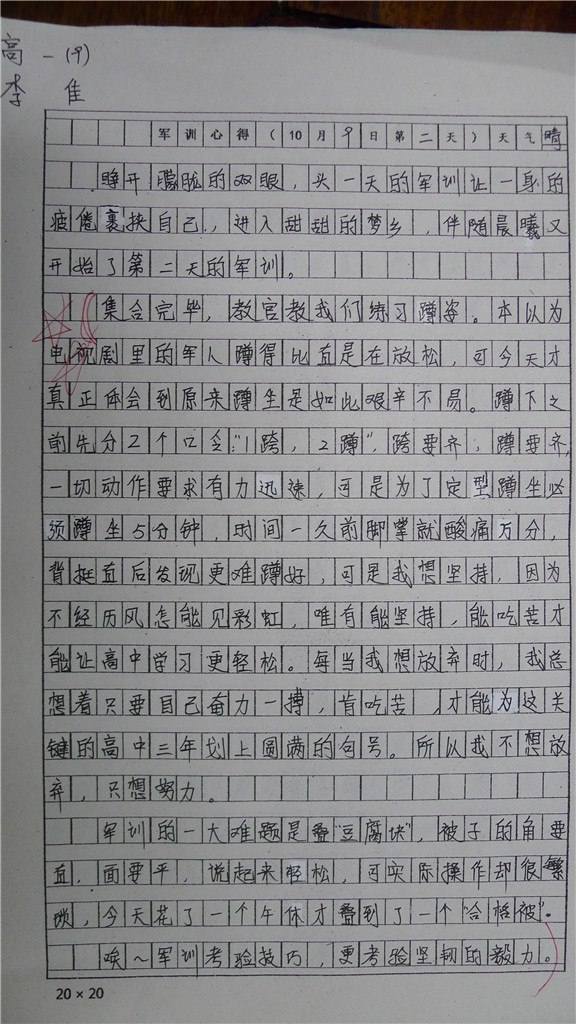 高一(9)
李佳
军训心得(10月9日第二天)天气晴
睁开朦胧的双眼,头一天的军训让一身的
疲倦裹挟自己,进入甜甜的梦乡,伴随晨曦又
开始了第二天的军训。
集合完毕,教官教我们练习蹲姿。本以为
电视剧里的军人蹲得比直是在放松,可今天才
真正体会到原来蹲坐是如此艰辛不易。蹲下之
前先分2个口令:"1跨,2蹲",跨要齐,蹲要齐,
一切动作要求有力迅速,可是为了定型蹲坐必
须蹲坐5分钟,时间一久前脚掌就酸痛万分,
背挺直后发现更难蹲好,可是我想坚持,因为
不经历风怎能见彩虹,唯有能坚持,能吃苦才
能让高中学习更轻松。每当我想放弃时,我总
想着只要自己奋力一搏,肯吃苦,才能为这关
键的高中三年划上圆满的句号。所以我不想放
弃,只想努力。
军训的一大难题是叠"豆腐块",被子的角要
直,面要平,说起来轻松,可实际操作却很繁
琐,今天花了一个午休才叠到了一个"合格被"。
唉~军训考验技巧,更考验坚韧的毅力。
20×20